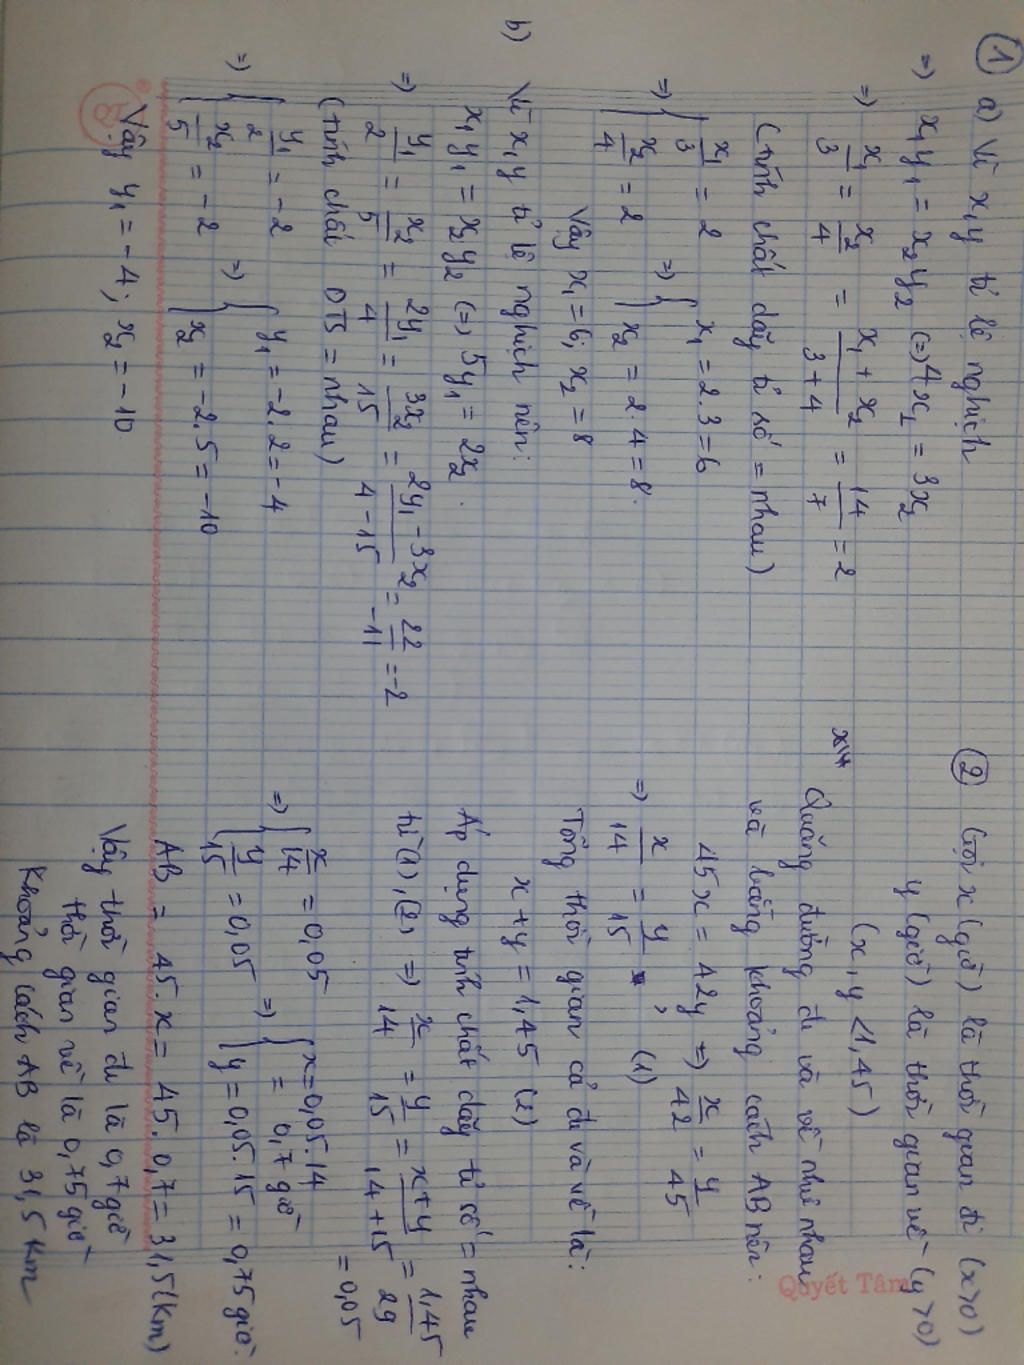 ① a) Vì x, y tỉ lệ nghịch
=) x₁y₁ = x₂y₂ (=) 4x₁ = 3x₂
=) x₁/3 = x₂/4 = (x₁ + x₂)/(3+4) = 14/7 = 2
(tính chất dãy tỉ số = nhau)
=) { x₁/3 = 2 =) { x₁ = 2.3 = 6
x₂/4 = 2 x₂ = 2.4 = 8.
Vậy x₁ = 6; x₂ = 8
b) Vì x, y tỉ lệ nghịch nên:
x₁y₁ = x₂y₂ (=) 5y₁ = 2x₂.
=) y₁/2 = x₂/5 = 2y₁/4 = 3x₂/15 = (2y₁ - 3x₂)/(4 - 15) = 22/-11 = -2
(tính chất DTS = nhau)
=) { y₁/2 = -2 =) { y₁ = -2.2 = -4
x₂/5 = -2 x₂ = -2.5 = -10
Vậy y₁ = -4; x₂ = -10.
② Gọi x (giờ) là thời gian đi (x>0)
y (giờ) là thời gian về (y>0)
(x, y < 1,45)
Quãng đường đi và về như nhau
và bằng khoảng cách AB nên:
45x = 42y =) x/42 = y/45
=) x/14 = y/15, (1)
Tổng thời gian cả đi và về là:
x + y = 1,45 (2)
Áp dụng tính chất dãy tỉ số = nhau
từ (1), (2) =) x/14 = y/15 = (x+y)/(14+15) = 1,45/29
= 0,05
=) { x/14 = 0,05 =) { x = 0,05.14
= 0,7 giờ
y/15 = 0,05 y = 0,05.15 = 0,75 giờ.
AB = 45.x = 45.0,7 = 31,5 (km)
Vậy thời gian đi là 0,7 giờ
thời gian về là 0,75 giờ
Khoảng cách AB là 31,5 km
Quyết Tâm